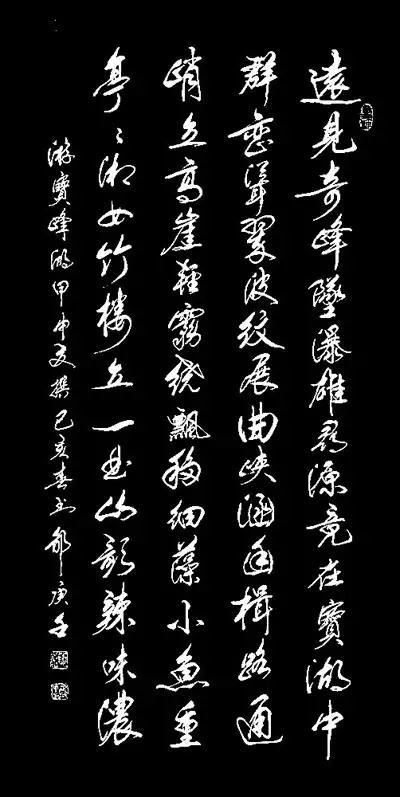 遠見奇峰墜瀑雄尋源竟在寶湖中
群巒聳翠波紋展曲峽涵幽楫路通
峭立高崖輕霧繞飄移細藻小魚重
亭〻湘女竹樓立一曲山歌辣味濃
游寶峰湖甲申夏撰己亥春書